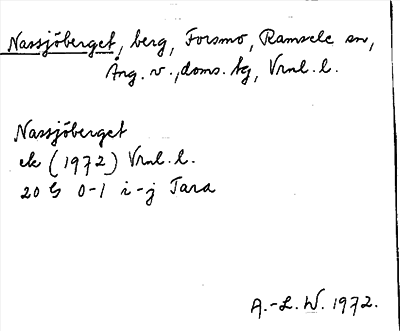 Nassjöberget, berg, Forsmo, Ramsele sn,
Ång. v., doms. tg, Vrml. l.
Nassjöberget
ek (1972) Vrml. l.
20 G 0-1 i-j Tara
A.-L. W. 1972.